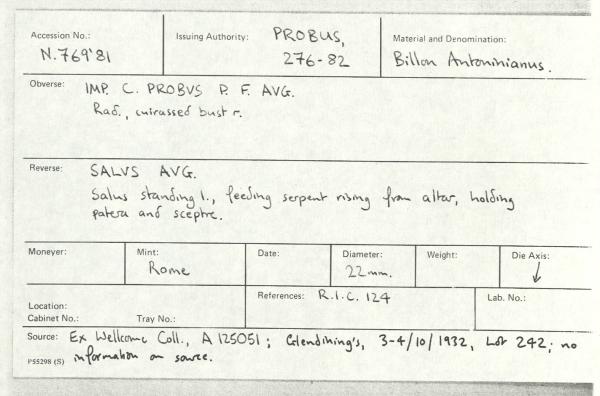 Accession No.: Issuing Authority: PROBUS, Material and Denomination:
N.769'81 276-82 Billon Antoninianus.
Obverse: IMP. C. PROBVS P. F. AVG.
Rad., cuirassed bust r.
Reverse: SALVS AVG.
Salus standing l., feeding serpent rising from altar, holding
patera and sceptre.
Moneyer: Mint: Date: Diameter: Weight: Die Axis:
Rome 22mm. ↓
Location: References: R.I.C. 124 Lab. No.:
Cabinet No.: Tray No.:
Source: Ex Wellcome Coll., A 125051; Glendining's, 3-4/10/1932, Lot 242; no
P55298 (S) information on source.